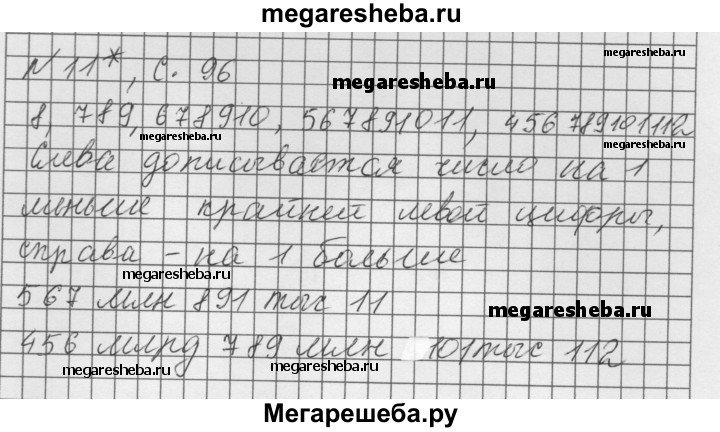 megaresheba.ru
megaresheba.ru
N 11*, с. 96
megaresheba.ru
8, 789, 678910, 567891011, 456789101112
Слева дописывается число на 1
меньше крайней левой цифры,
справа - на 1 больше
megaresheba.ru
567 млн 891 тыс 11
megaresheba.ru
456 млрд 789 млн 101 тыс 112
megaresheba.ru
megaresheba.ru
Мегарешеба.ру